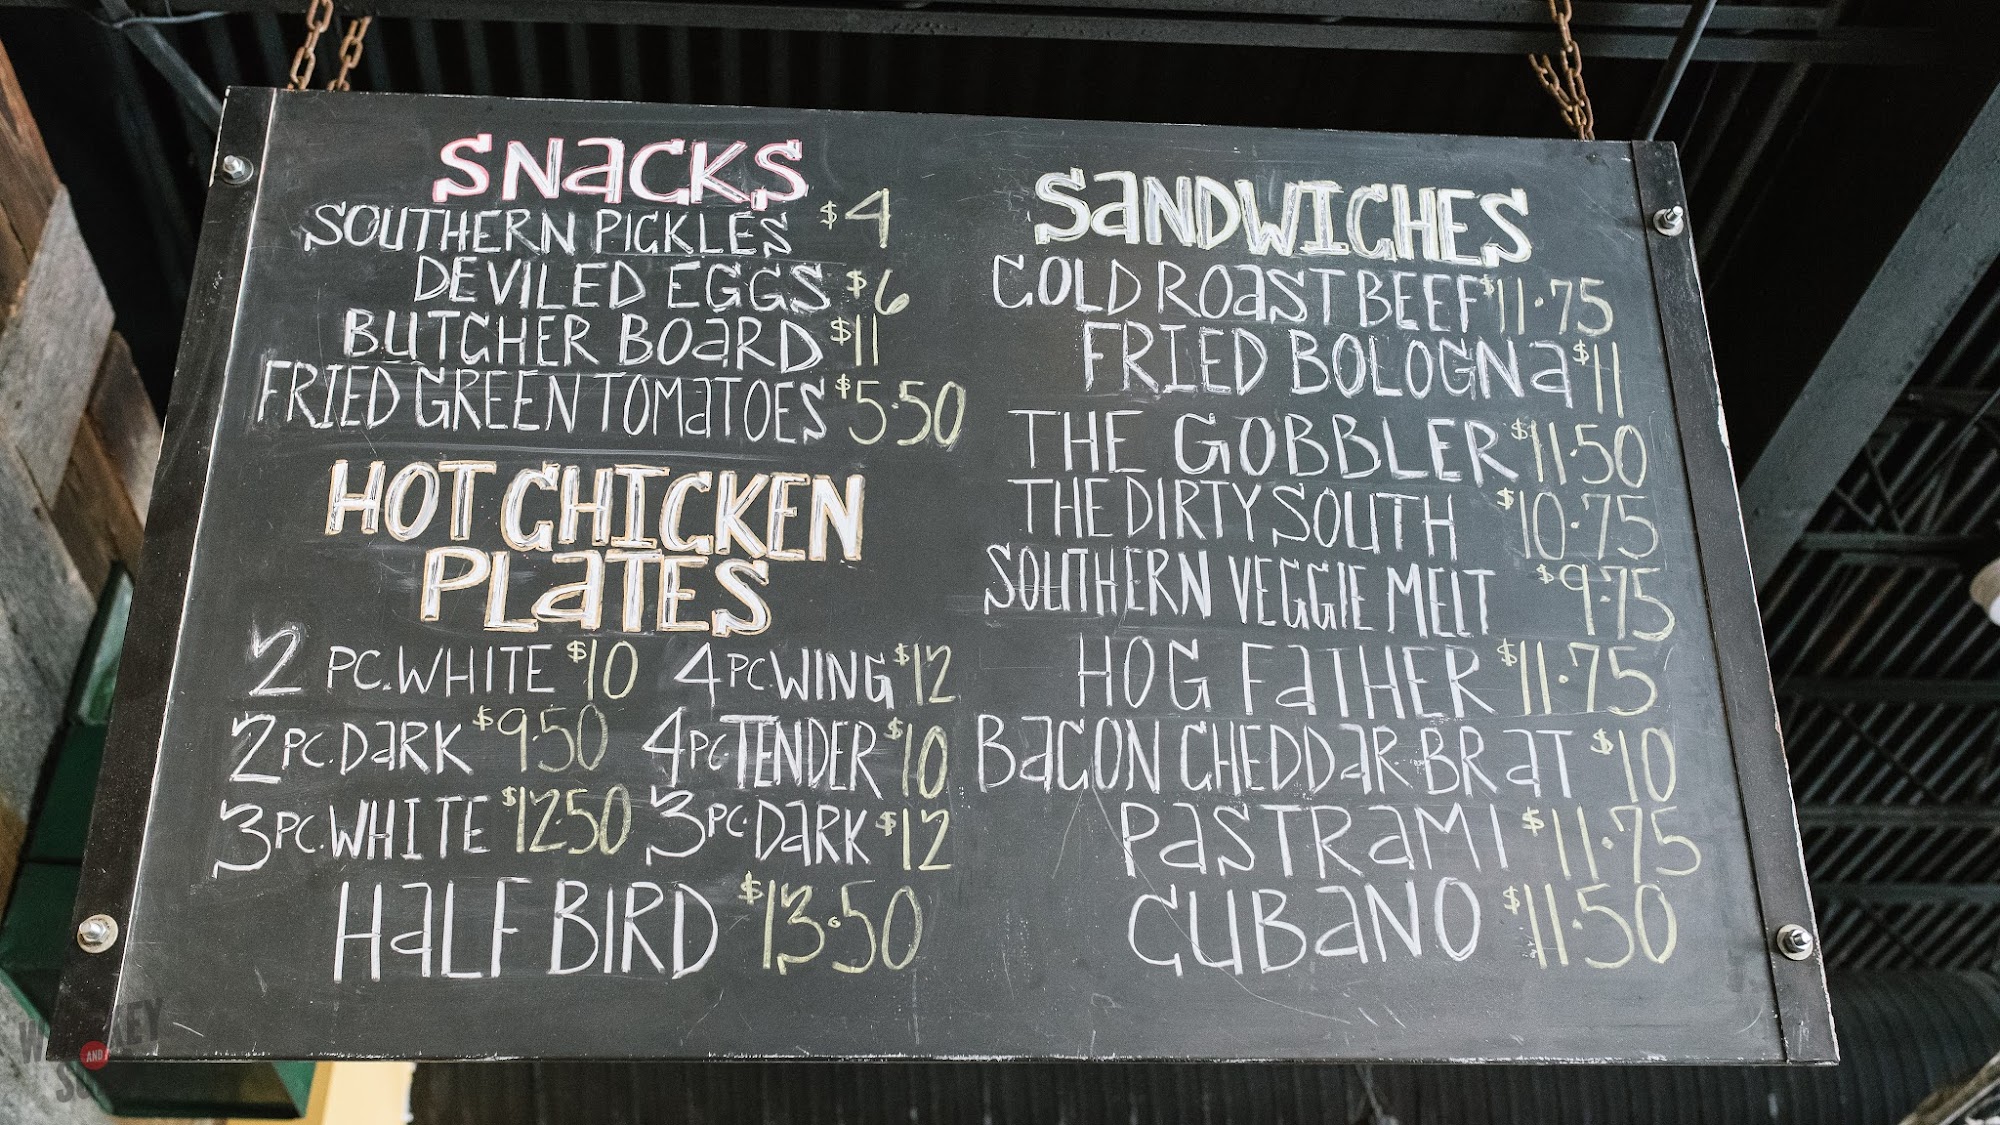 SNACKS
SOUTHERN PICKLES $4
DEVILED EGGS $6
BUTCHER BOARD $11
FRIED GREEN TOMATOES $5.50
HOT CHICKEN
PLATES
2 PC. WHITE $10 4 PC. WING $12
2 PC. DARK $9.50 4 PC TENDER $10
3 PC. WHITE $12.50 3 PC. DARK $12
HALF BIRD $13.50
SANDWICHES
COLD ROAST BEEF $11.75
FRIED BOLOGNA $11
THE GOBBLER $11.50
THE DIRTY SOUTH $10.75
SOUTHERN VEGGIE MELT $9.75
HOG FATHER $11.75
BACON CHEDDAR BRAT $10
PASTRAMI $11.75
CUBANO $11.50
AND